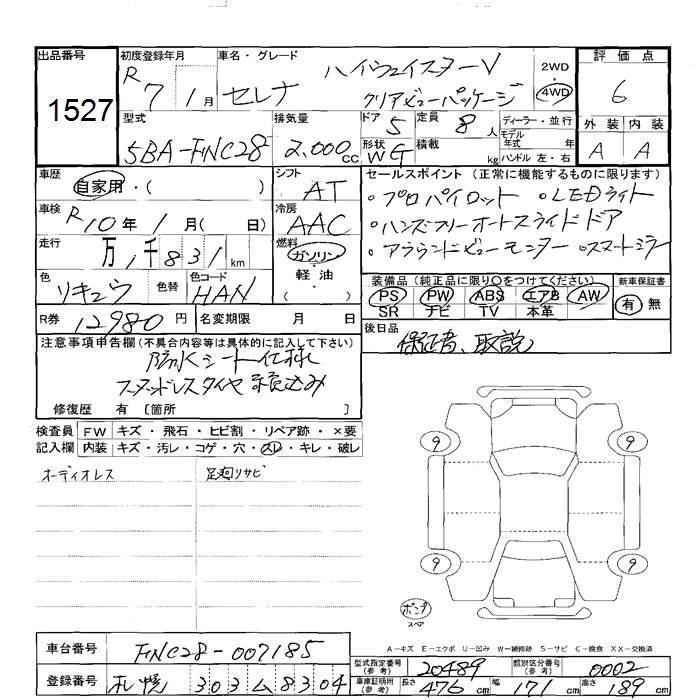 出品番号 1527
初度登録年月 R7 1月
車名・グレード セレナ ハイウェイスターV クリアビューパッケージ
2WD
4WD
評価点 6
外装 内装
A A
型式 5BA-FNC28
排気量 2,000cc
ドア 5 定員 8人
形状 WG 積載 kg
ディーラー・並行
モデル年式 年
ハンドル 左・右
車歴 自家用・( )
車検 R10年1月( 日)
走行 万1千831km
色 リキュウ 色替
色コード HAN
シフト AT
冷房 AAC
燃料 ガソリン
軽油
・( )
セールスポイント(正常に機能するものに限ります)
・プロパイロット ・LEDライト
・ハンズフリーオートスライドドア
・アラウンドビューモニター ・スマートミラー
装備品(純正品に限り○をつけてください)
PS PW ABS エアB AW
SR ナビ TV 本革
新車保証書
有 無
R券 12980円 名変期限 月 日
後日品
保証書、取説
注意事項申告欄(不具合内容等は具体的に記入して下さい)
防水シート仕様
スタッドレスタイヤ積込み
修復歴 有 〔箇所 〕
検査員記入欄
FW キズ・飛石・ヒビ割・リペア跡・×要
内装 キズ・汚レ・コゲ・穴・スレ・キレ・破レ
オーディオレス
足廻リサビ
9 9
9 9
A-キズ E-エクボ U-凹み W-補修跡 S-サビ C-腐食 XX-交換済
車台番号 FNC28-007185
登録番号 札幌 303 ム 8304
型式指定番号(参考) 20489
類別区分番号(参考) 0002
車庫証明用(参考) 長さ 476cm 幅 171cm 高さ 189cm